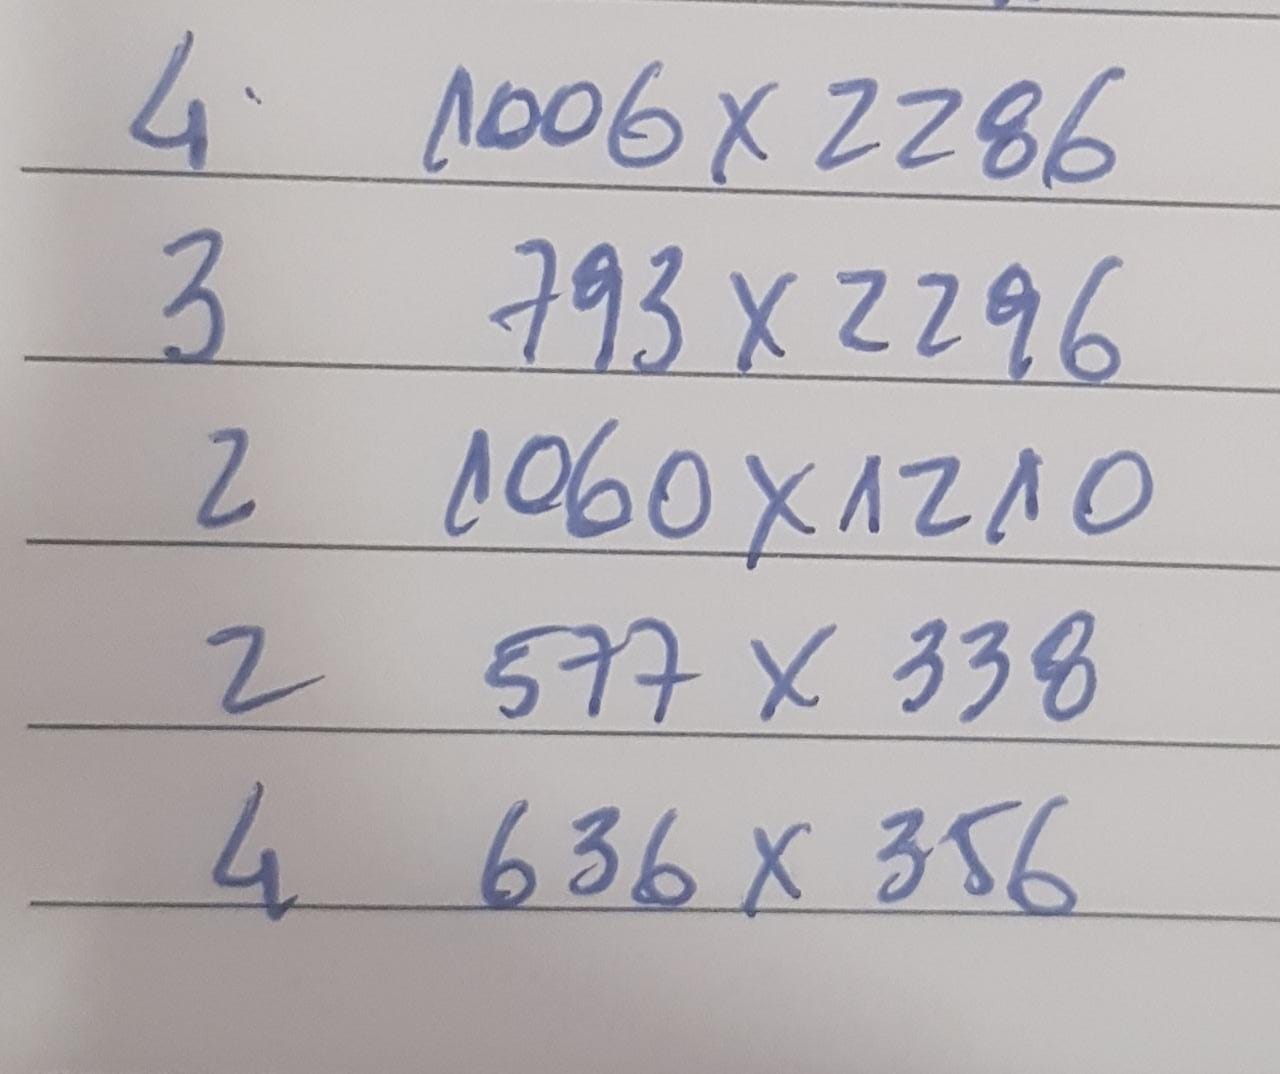 4 1006 x 2286
3 793 x 2296
2 1060 x 1210
2 577 x 338
4 636 x 356